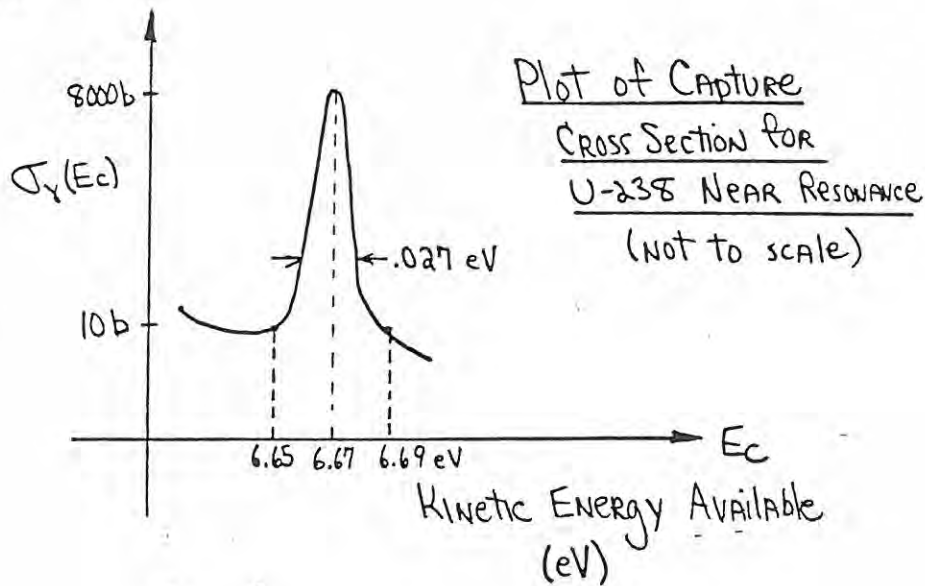 8000b
σγ(Ec)
10b
.027 eV
Plot of Capture
Cross Section for
U-238 Near Resonance
(Not to scale)
6.65 6.67 6.69 eV
Ec
Kinetic Energy Available
(eV)